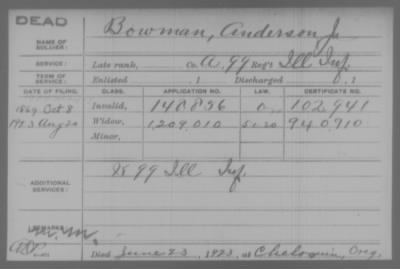 DEAD
NAME OF SOLDIER: Bowman, Anderson J
SERVICE: Late rank, Co. A, 99 Reg't Ill Inf.
TERM OF SERVICE: Enlisted , 1 Discharged , 1
DATE OF FILING. CLASS. APPLICATION NO. LAW. CERTIFICATE NO.
1869 Oct 8 Invalid, 148836 102,941
Aug 20 Widow, 1,209,010 940,910
Minor,
ADDITIONAL SERVICES: K 99 Ill Inf.
REMARKS:
Died June 23, 1923, at Chiloquin, Oreg,